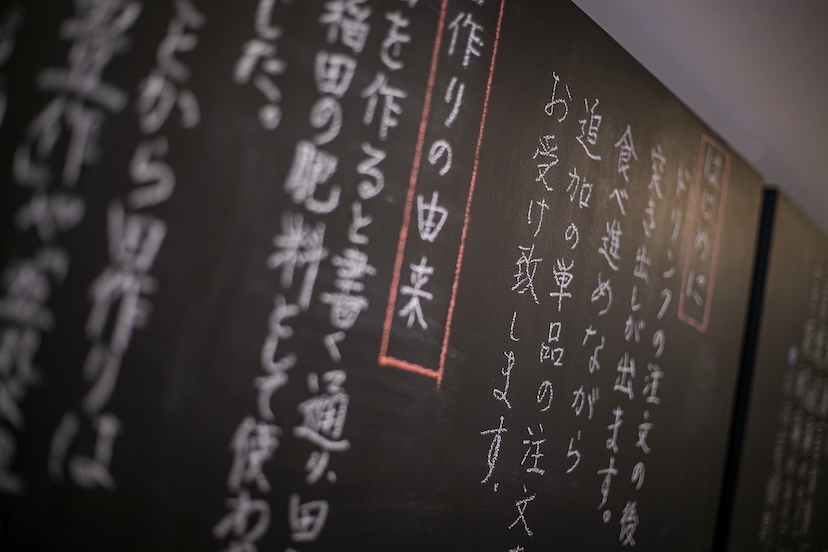 はじめに
ドリンクの注文の後
突き出しが出ます。
食べ進めながら
追加の単品の注文
お受け致します。
作りの由来
を作ると書く通り、田
稲田の肥料として使わ
した。
とから田作りは
豊作